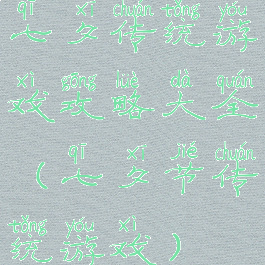 qī xī chuán tǒng yóu
七夕传统游
xì gōng lüè dà quán
戏攻略大全
qī xī jié chuán
（七夕节传
tǒng yóu xì
统游戏）